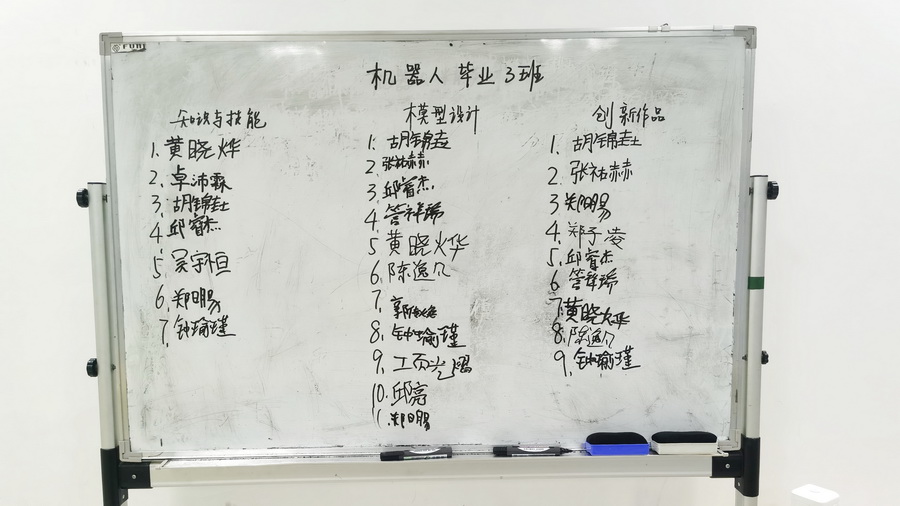 机器人毕业3班
知识与技能
1. 黄晓烨
2. 卓沛霖
3. 胡锦圭
4. 邱睿杰
5. 吴宇恒
6. 郑明易
7. 钟瑜瑾
模型设计
1. 胡锦圭
2. 张祐赫
3. 邱睿杰
4. 管祥瑞
5 黄晓烨
6. 陈逸凡
7.
8. 钟瑜瑾
9.
10. 邱亮
11. 郑明易
创新作品
1. 胡锦圭
2. 张祐赫
3 郑明易
4. 郑子凌
5. 邱睿杰
6 管祥瑞
7 黄晓烨
8. 陈逸凡
9. 钟瑜瑾